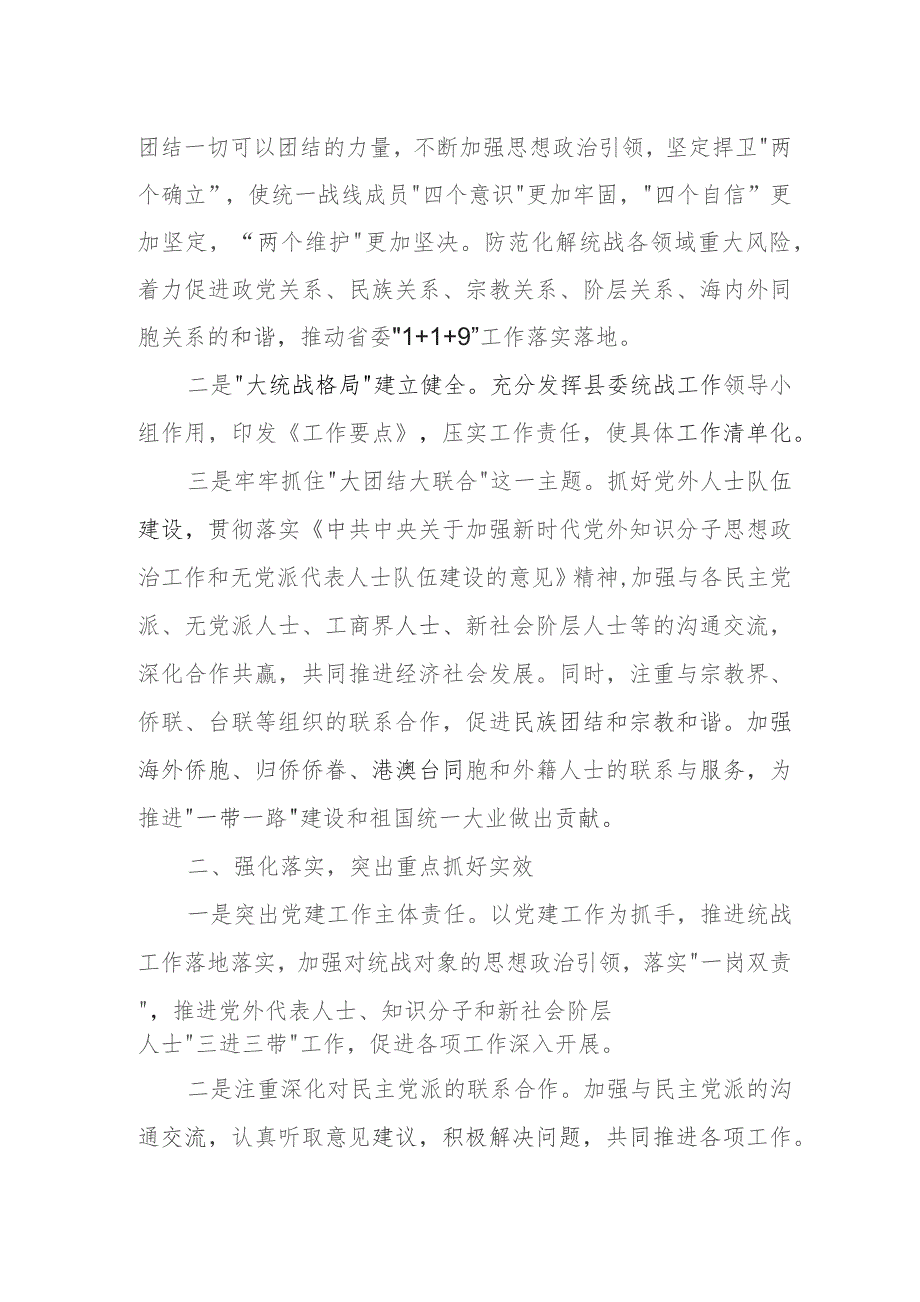 团结一切可以团结的力量，不断加强思想政治引领，坚定捍卫"两
个确立”，使统一战线成员"四个意识"更加牢固，"四个自信”更
加坚定，“两个维护"更加坚决。防范化解统战各领域重大风险，
着力促进政党关系、民族关系、宗教关系、阶层关系、海内外同
胞关系的和谐，推动省委"1+1+9”工作落实落地。
二是"大统战格局"建立健全。充分发挥县委统战工作领导小
组作用，印发《工作要点》，压实工作责任，使具体工作清单化。
三是牢牢抓住"大团结大联合"这一主题。抓好党外人士队伍
建设，贯彻落实《中共中央关于加强新时代党外知识分子思想政
治工作和无党派代表人士队伍建设的意见》精神,加强与各民主党
派、无党派人士、工商界人士、新社会阶层人士等的沟通交流，
深化合作共赢，共同推进经济社会发展。同时，注重与宗教界、
侨联、台联等组织的联系合作，促进民族团结和宗教和谐。加强
海外侨胞、归侨侨眷、港澳台同胞和外籍人士的联系与服务，为
推进"一带一路"建设和祖国统一大业做出贡献。
二、强化落实，突出重点抓好实效
一是突出党建工作主体责任。以党建工作为抓手，推进统战
工作落地落实，加强对统战对象的思想政治引领，落实"一岗双责
"，推进党外代表人士、知识分子和新社会阶层
人士"三进三带"工作，促进各项工作深入开展。
二是注重深化对民主党派的联系合作。加强与民主党派的沟
通交流，认真听取意见建议，积极解决问题，共同推进各项工作。